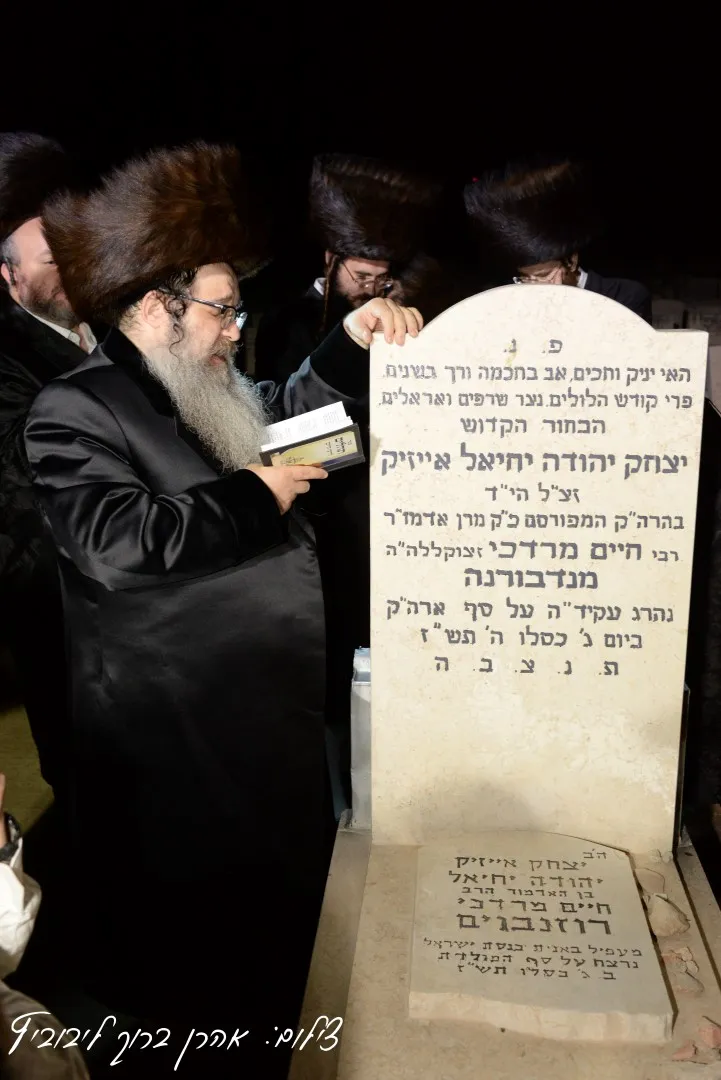 פ. נ.
האי יניק וחכים, אב בחכמה ורך בשנים,
פרי קודש הלולים, נצר שרפים ואראלים,
הבחור הקדוש
יצחק יהודה יחיאל אייזיק
זצ"ל הי"ד
בהרה"ק המפורסם כ"ק מרן אדמו"ר
רבי חיים מרדכי זצוקללה"ה
מנדבורנה
נהרג עקיד"ה על סף ארה"ק
ביום ג' כסלו ה' תש"ז
ת. נ. צ. ב. ה
הב'
יצחק אייזיק
יהודה יחיאל
בן האדמור הרב
חיים מרדכי
רוזנבוים
מעפיל באנית כנסת ישראל
נרצח על סף המולדת
ב. ג' כסלו תש"ז
צילום: אהרן ברוך ליבוביץ